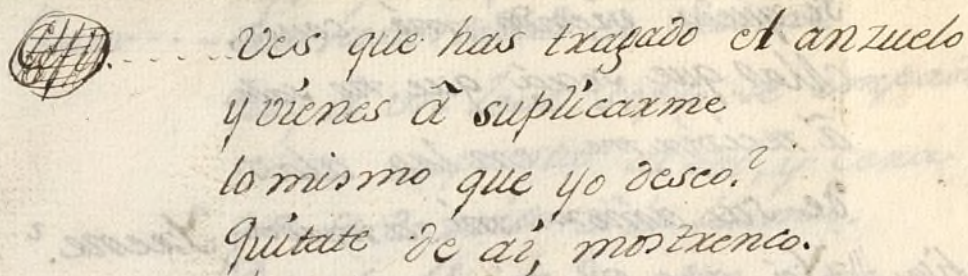 Ves que has tragado el anzuelo
y vienes â suplicarme
lo mismo que yo deseo?
Quitate de aì, mostrenco.